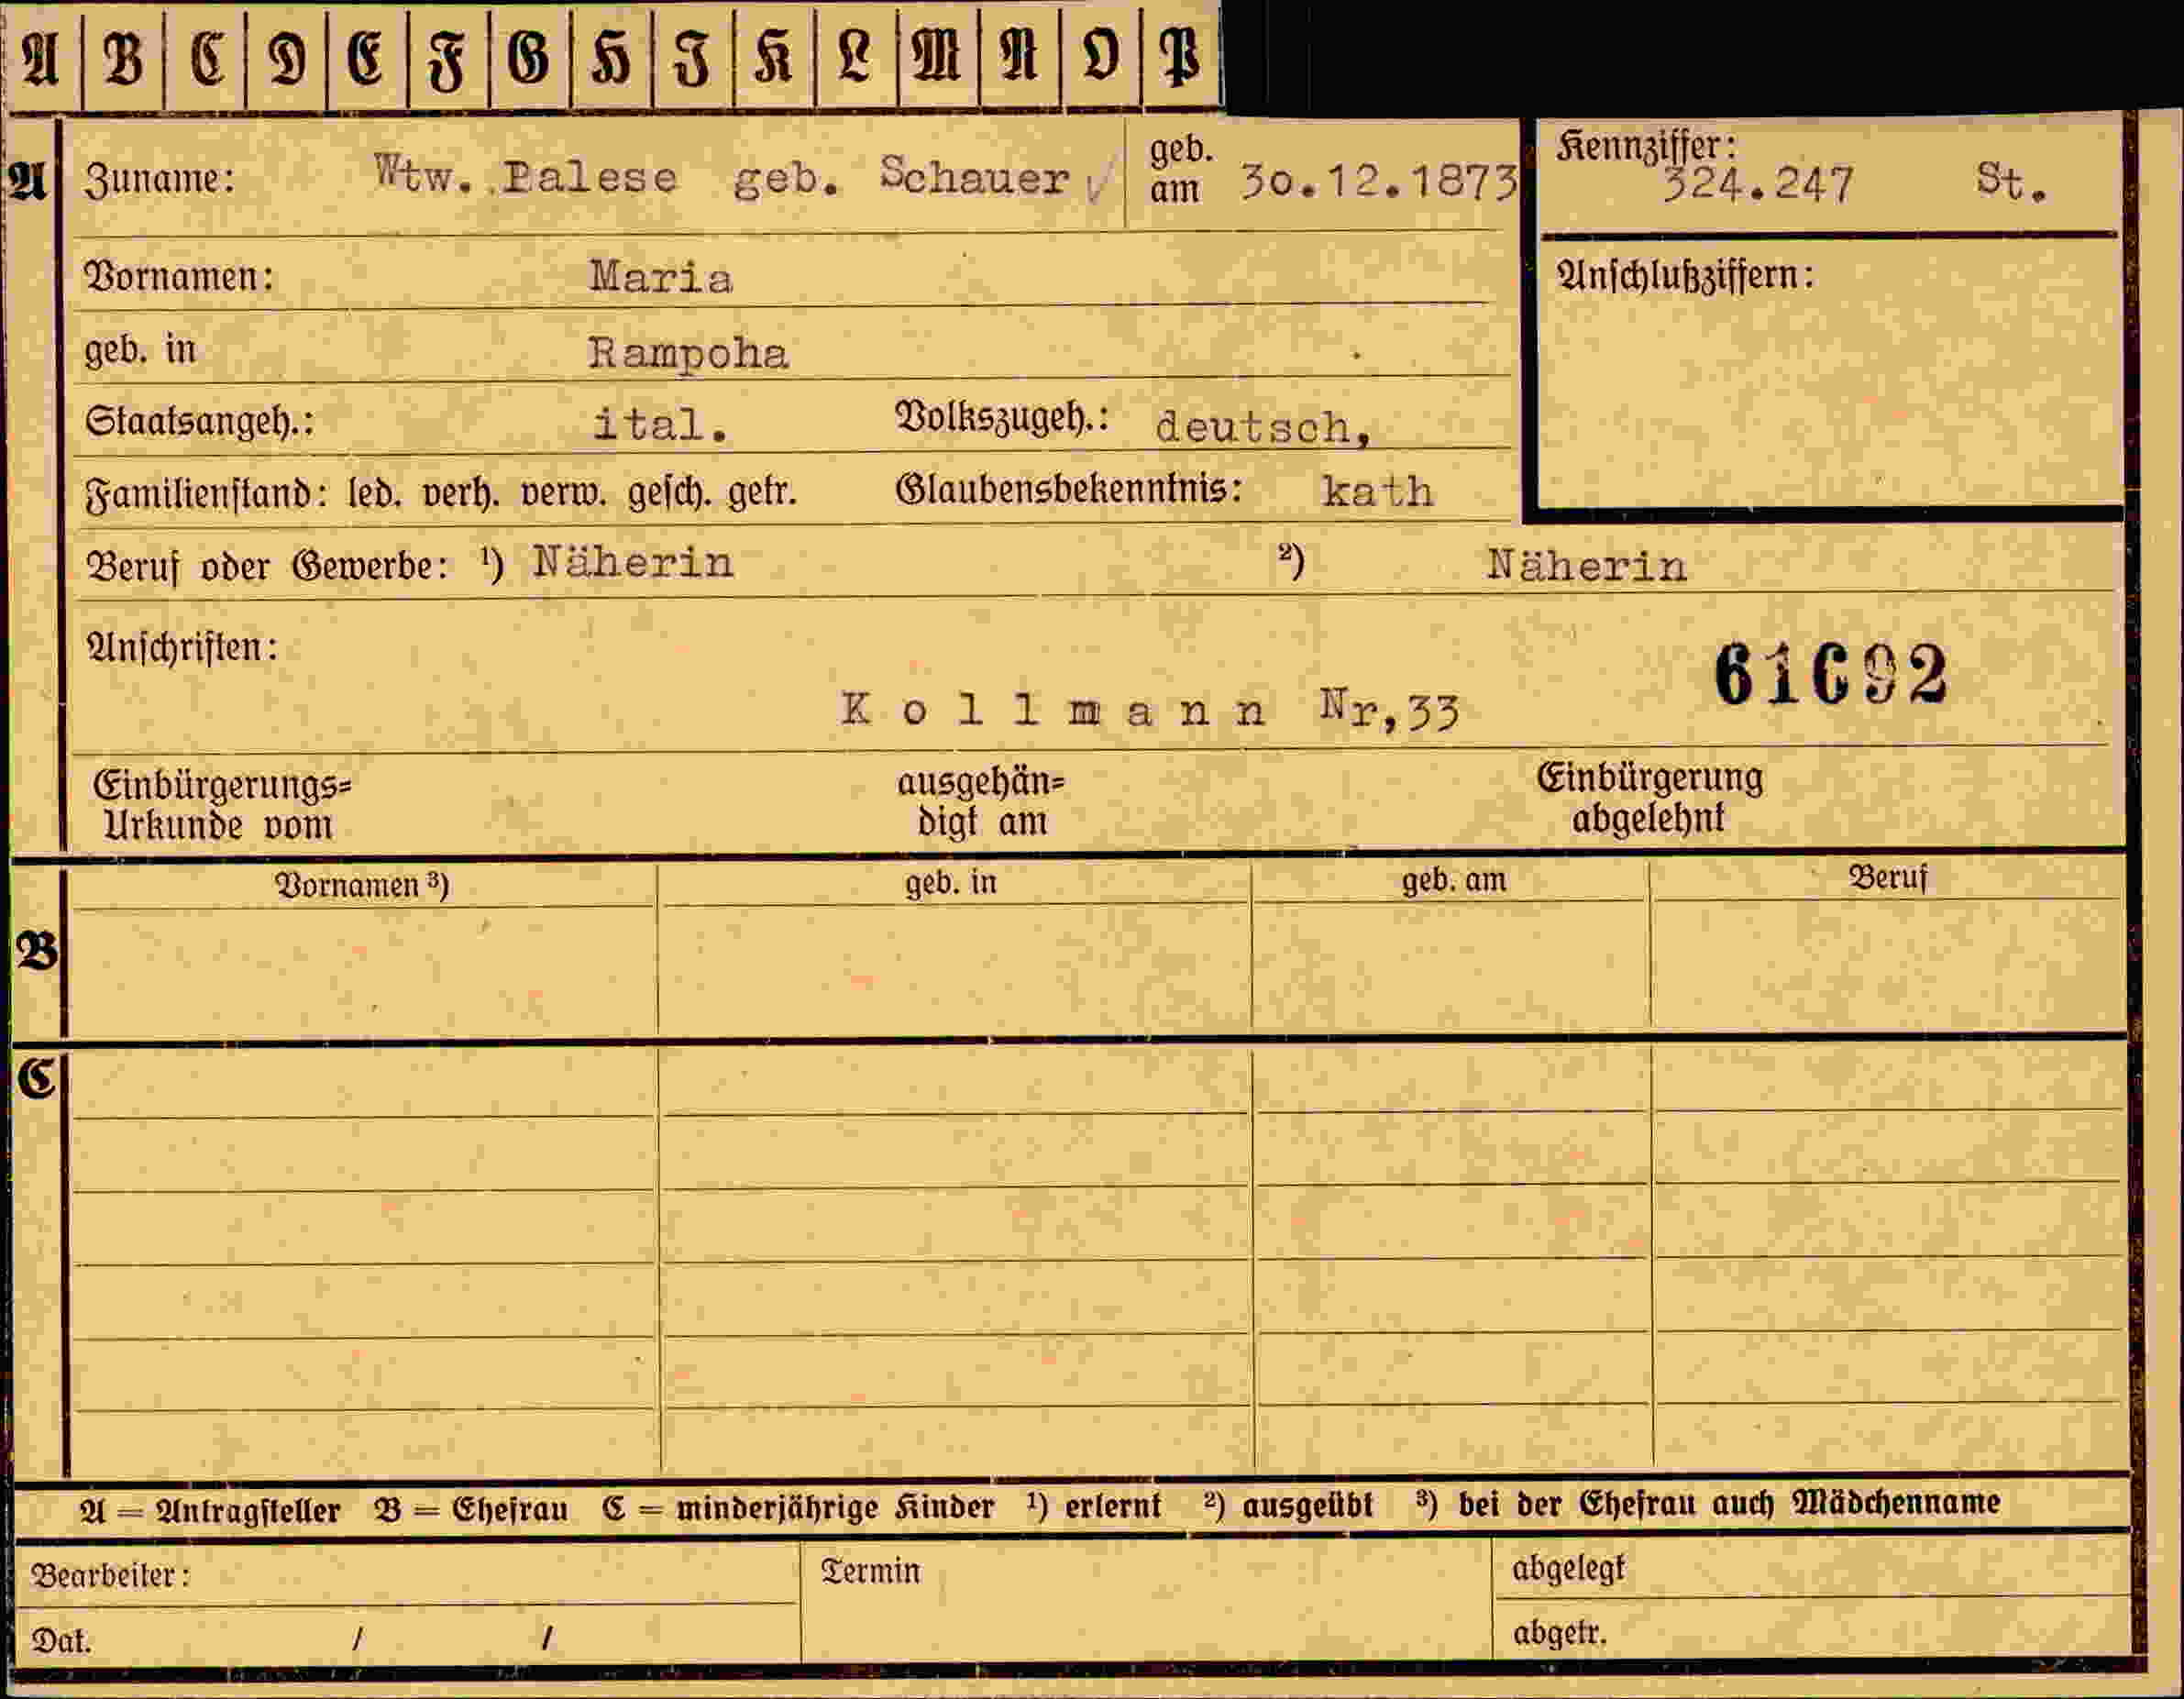 A B C D E F G H I K L M N O P
A Zuname: Wtw. Palese geb. Schauer geb. am 30.12.1873 Kennziffer: 324.247 St.
Vornamen: Maria Anschlußziffern:
geb. in Rampoha
Staatsangeh.: ital. Volkszugeh.: deutsch,
Familienstand: led. verh. verw. gesch. getr. Glaubensbekenntnis: kath
Beruf oder Gewerbe: ¹) Näherin ²) Näherin
Anschriften: 61692
Kollmann Nr,33
Einbürgerungs= ausgehän= Einbürgerung
Urkunde vom digt am abgelehnt
Vornamen ³) geb. in geb. am Beruf
B
C
A = Antragsteller B = Ehefrau C = minderjährige Kinder ¹) erlernt ²) ausgeübt ³) bei der Ehefrau auch Mädchenname
Bearbeiter: Termin abgelegt
Dat. / / abgetr.